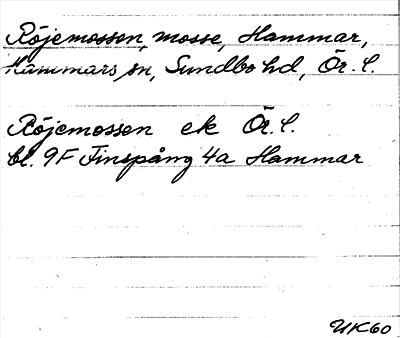 Röjemossen, mosse, Hammar,
Hammars sn, Sundbo hd, Ör. l.
Röjemossen ek Ör. l.
bl. 9F Finspång 4a Hammar
UK60